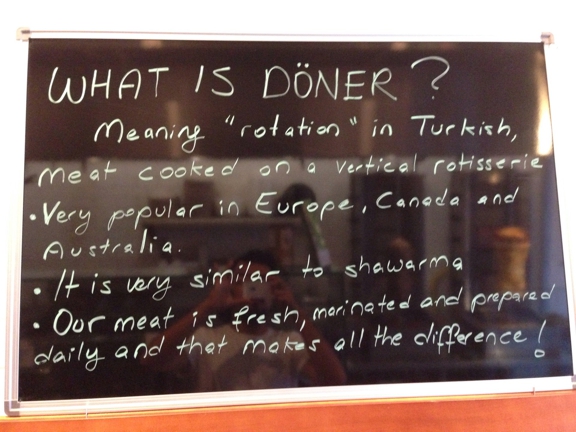 WHAT IS DÖNER?
Meaning "rotation" in Turkish,
meat cooked on a vertical rotisserie
• Very popular in Europe, Canada and
Australia.
• It is very similar to shawarma
• Our meat is fresh, marinated and prepared
daily and that makes all the difference!